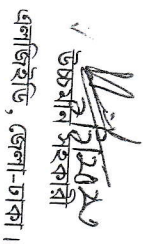 উচ্চমান সহকারি
এলজিইডি, জেলা-ঢাকা।